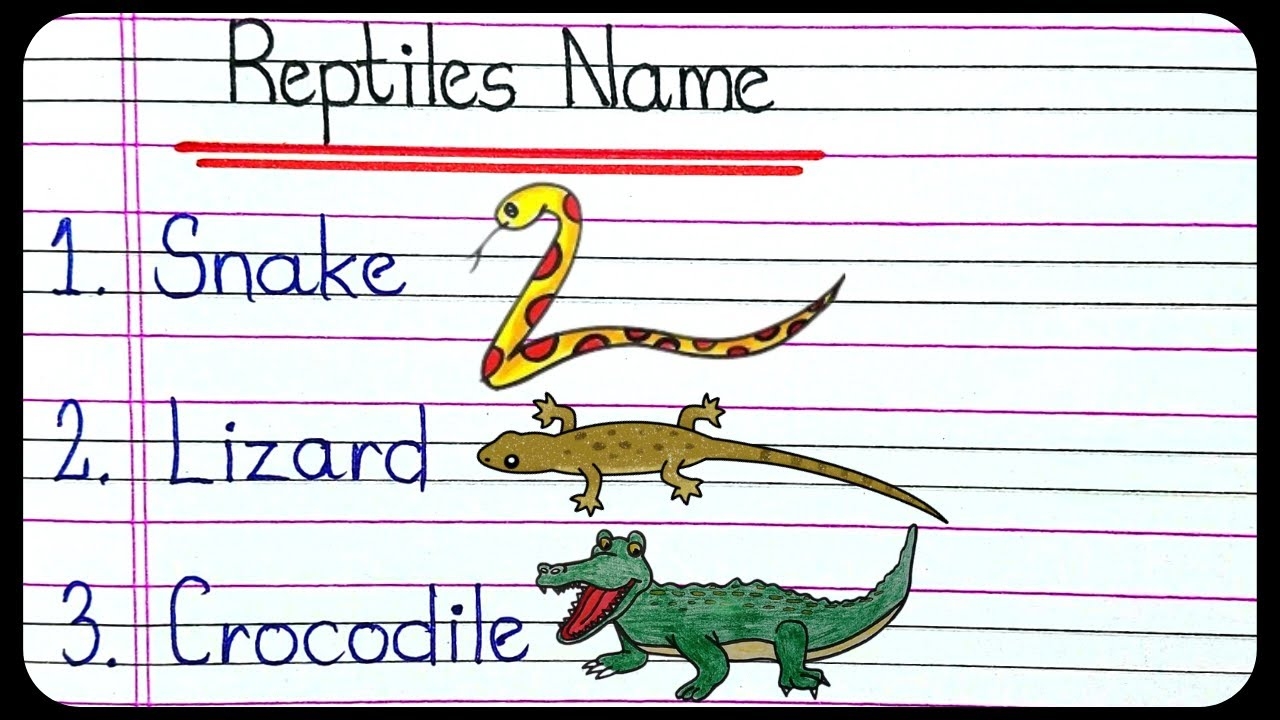 Reptiles Name
1. Snake
2. Lizard
3. Crocodile